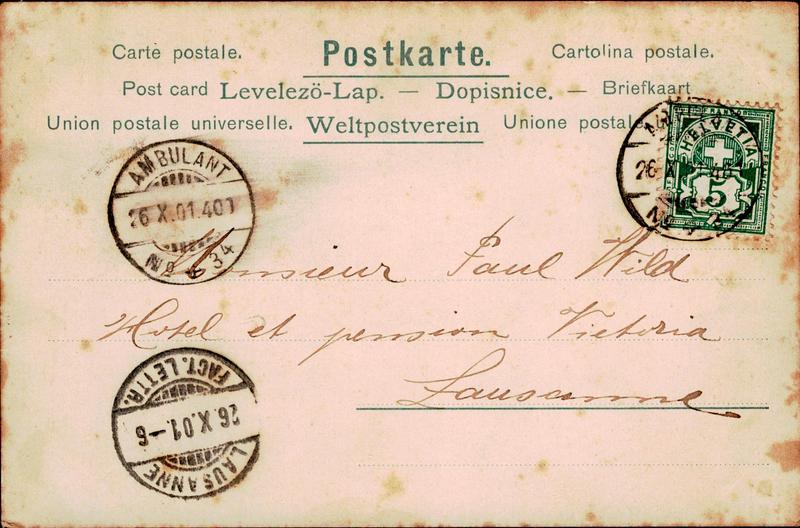 Carte postale. Postkarte. Cartolina postale.
Post card Levelezö-Lap. — Dopisnice. — Briefkaart
Union postale universelle. Weltpostverein Unione postale
HELVETIA
5
AMBULANT
26 X.01.401
No 34
26 X
Monsieur Paul Wild
Hotel et pension Victoria
Lausanne
FACT. LETTR.
26 X.01.-6
LAUSANNE